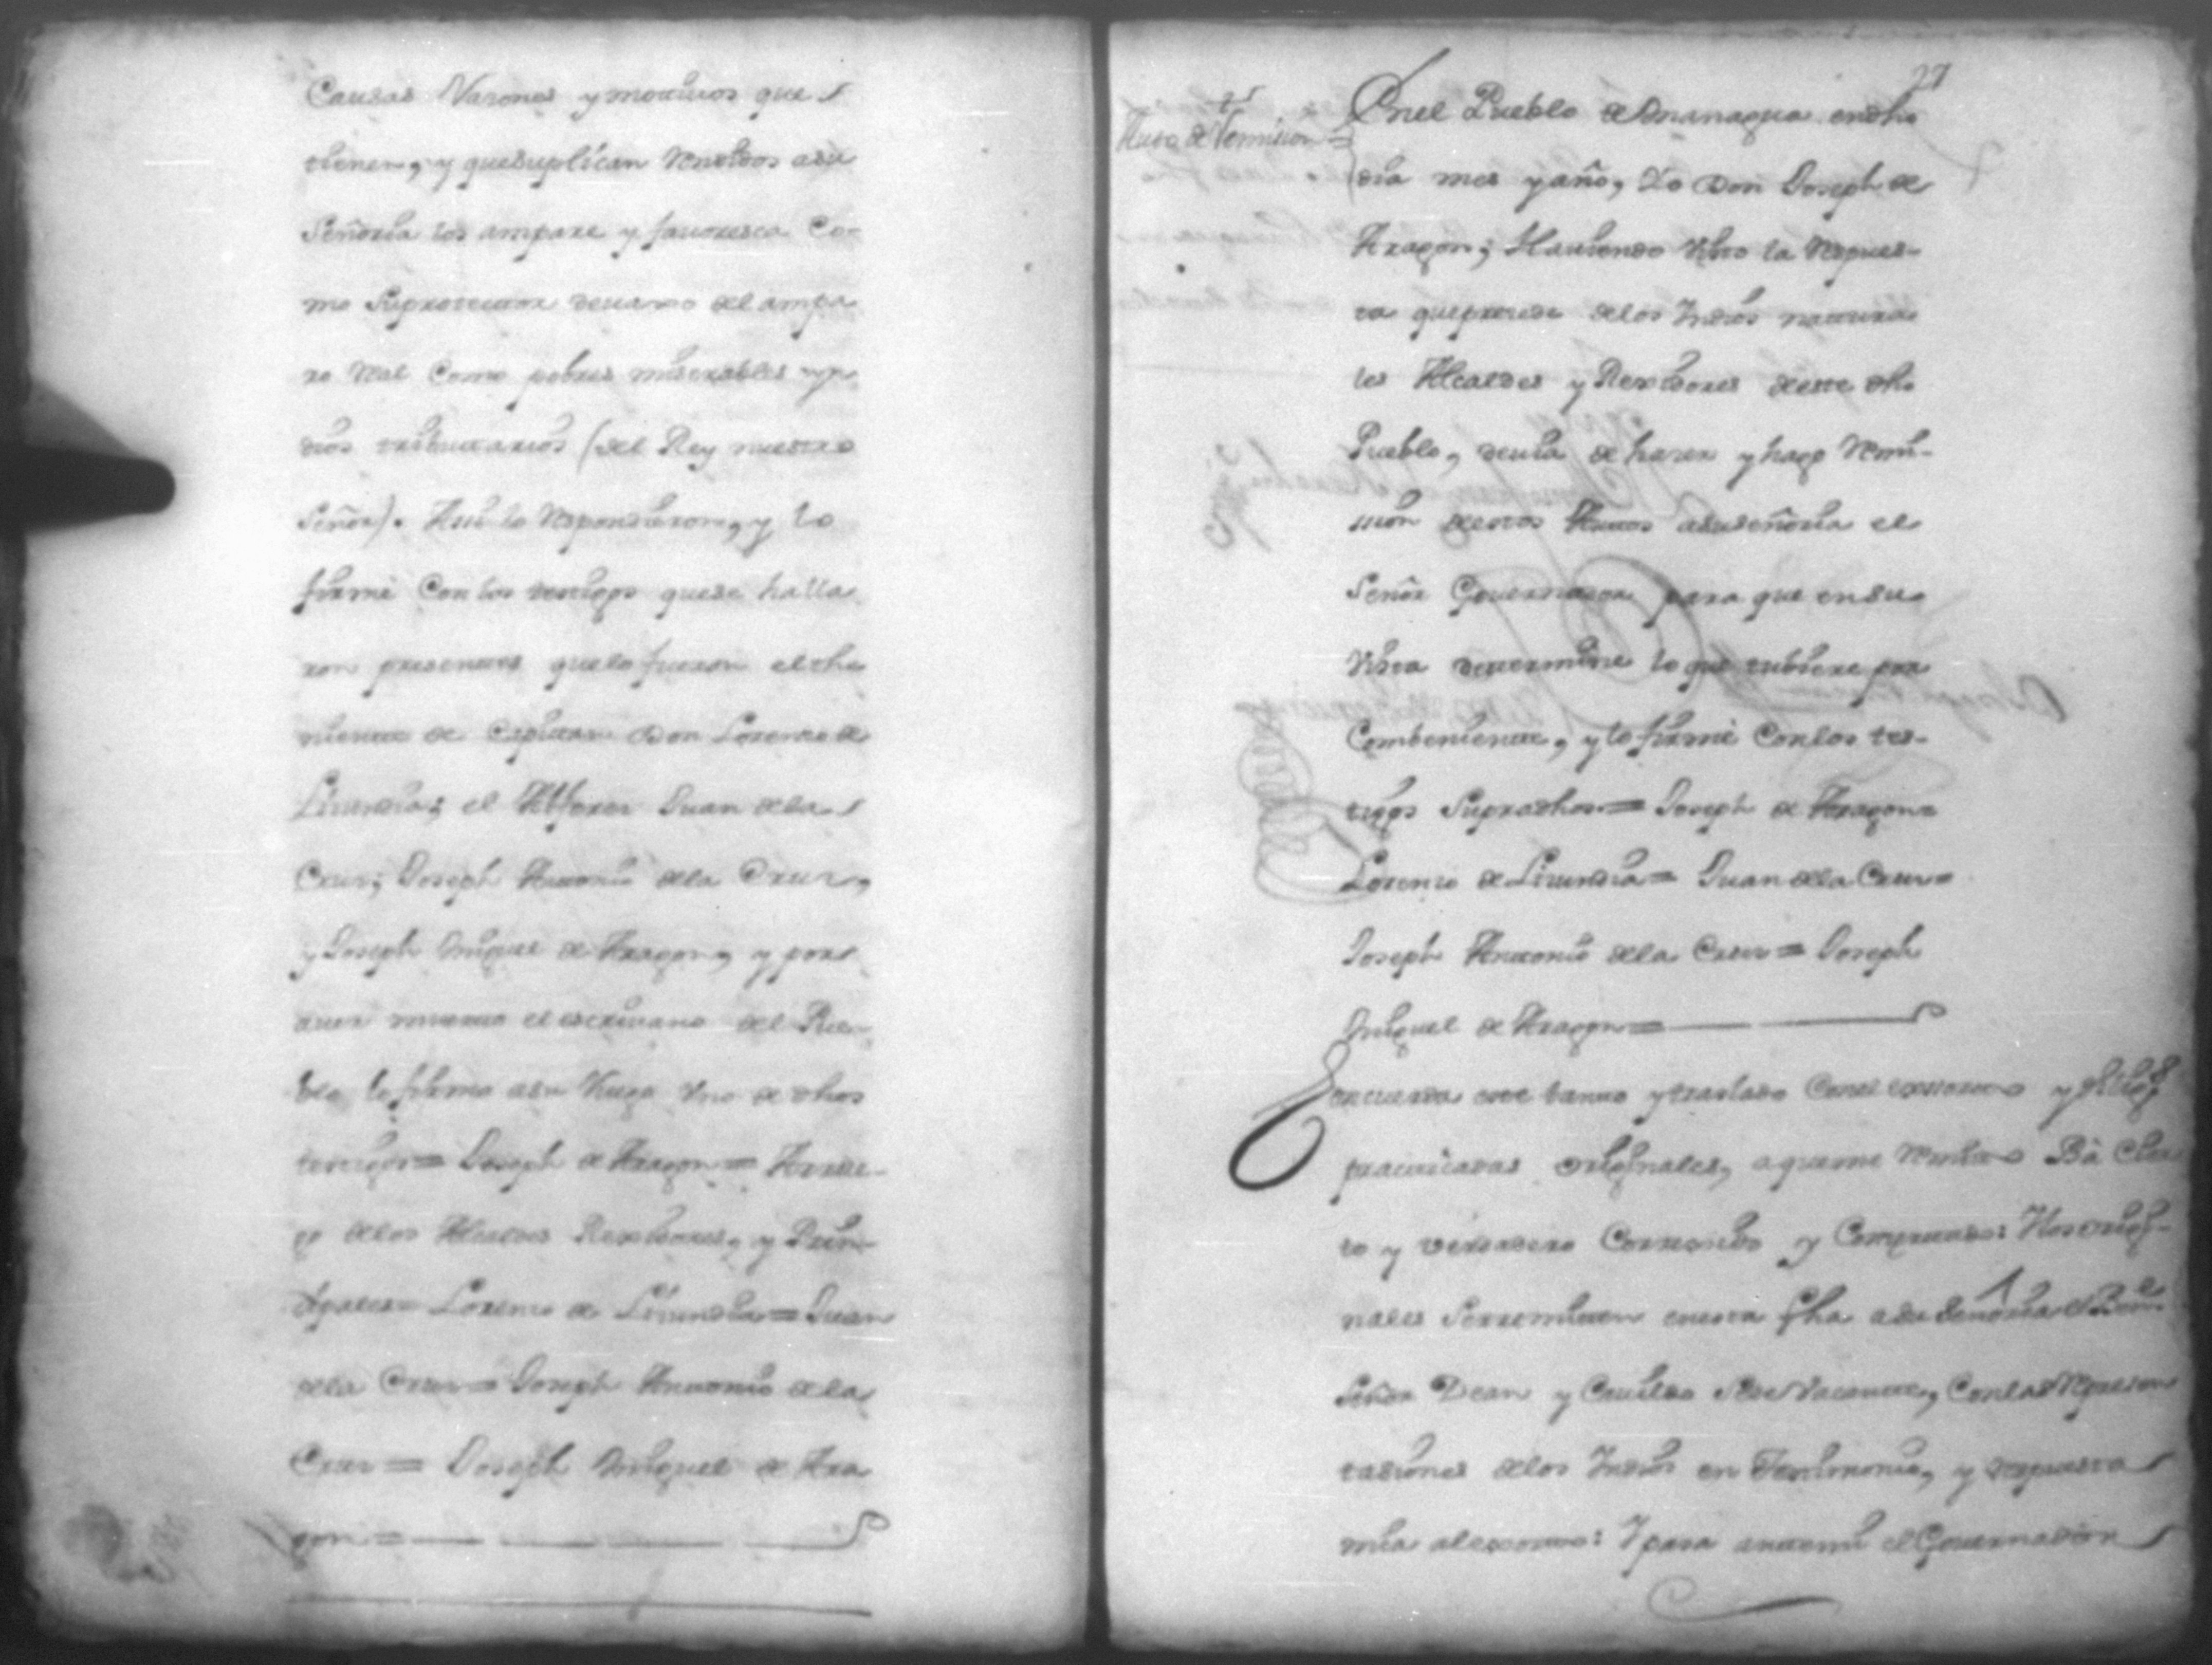 Causas Razones y motiuos que
tienen, y que suplican Rendidos a su
Señoria los ampare y fauoresca Co-
mo Su protector deuaxo del ampa
ro Real Como pobres miserables yn
dios tributarios (del Rey nuestro
Señor). Assi lo Respondieron, y lo
firmè Con los testigos que se halla
ron presentes que lo fueron el the
niente de Capitan Don Lorenzo de
Lizundia; el Alferez Juan de la
Cruz; Joseph Antonio de la Cruz,
y Joseph Miguel de Aragon, y por
auer muerto el escriuano del Pue-
blo lo firmo a su Ruego Vno de dhos
testigos = Joseph de Aragon = A rue-
go de los Alcaldes Rexidores, y Prin-
sipales = Lorenzo de Lizundia = Juan
de la Cruz = Joseph Antonio de la
Cruz = Joseph Miguel de Ara
gon =
27
Auto de Remision =
En el Pueblo de Managua en dho
dia mes y año, Yo Don Joseph de
Aragon; Hauiendo Visto la Respues-
ta que presede de los Indios natura
les Alcaldes y Rexidores deste dho
Pueblo, deuia de hazer y hago Remi-
sion destos Autos a su señoria el
Señor Gouernador para que en su
Vista determine lo que tubiere por
Combeniente, y lo firmè Con los tes-
tigos Supradhos = Joseph de Aragon =
Lorenzo de Lizundia = Juan de la Cruz =
Joseph Antonio de la Cruz = Joseph
Miguel de Aragon =
Concuerda este tanto y traslado Con el exsorto y
practicadas originales, a que me Remito Bà Cier
to y verdadero Corregido y Consertado: Y los origi-
nales Se rremiten en esta fha a su Señoria el
Señor Dean y Cauildo Sede Vacante, Con las Represen
tasiones de los Indios en Testimonio, y respuesta
mia al exsorto: Y passa ante mi el Gouernador